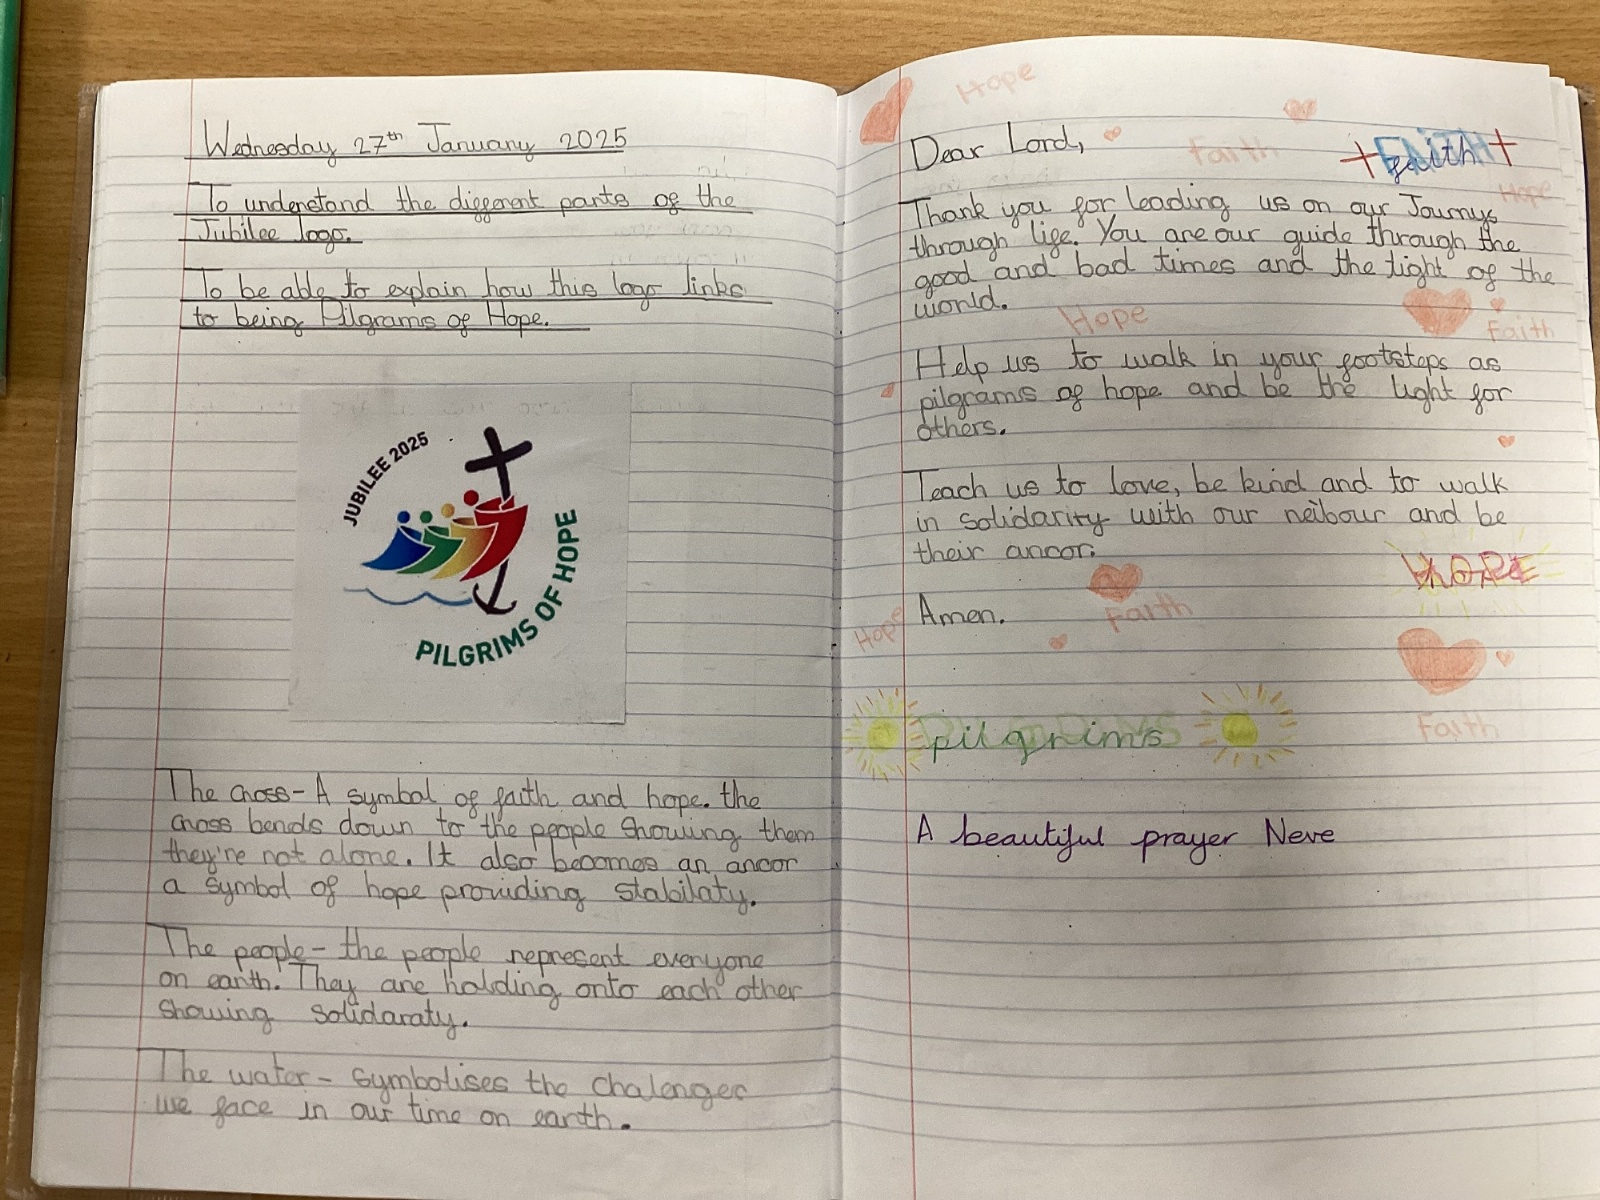 Wednesday 27th January 2025
To understand the different parts of the
Jubilee logo.
To be able to explain how this logo links
to being Pilgrams of Hope.
JUBILEE 2025
PILGRIMS OF HOPE
The cross- A symbol of faith and hope. the
cross bends down to the people showing them
they're not alone. It also becomes an ancor
a symbol of hope providing stabilaty.
The people- the people represent everyone
on earth. They are holding onto each other
showing solidaraty.
The water- symbolises the chalenges
we face in our time on earth.
Hope
Dear Lord,
Faith
FAITH
faith
Hope
Thank you for leading us on our Journys
through life. You are our guide through the
good and bad times and the light of the
world.
Hope
Faith
Help us to walk in your footsteps as
pilgrams of hope and be the light for
others.
Teach us to love, be kind and to walk
in solidarity with our neibour and be
their ancor.
HOPE
Amen.
Faith
Hope
Faith
PILGRIMS
pilgrims
A beautiful prayer Neve